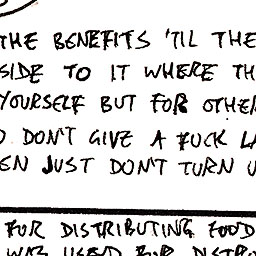 THE BENEFITS 'TIL THE
SIDE TO IT WHERE TH
YOURSELF BUT FOR OTHE
DON'T GIVE A FUCK LA
EN JUST DON'T TURN U
FOR DISTRIBUTING FOOD
WAS USED FOR DISTRO